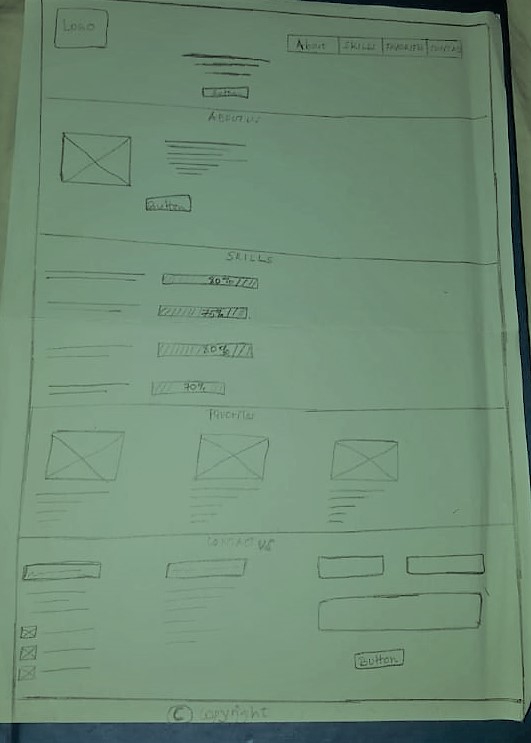 LOGO
About SKILLS FAVORITES CONTACT
Button
ABOUT US
Button
SKILLS
80%
75%
80%
70%
Favorites
CONTACT US
Button
© Copyright